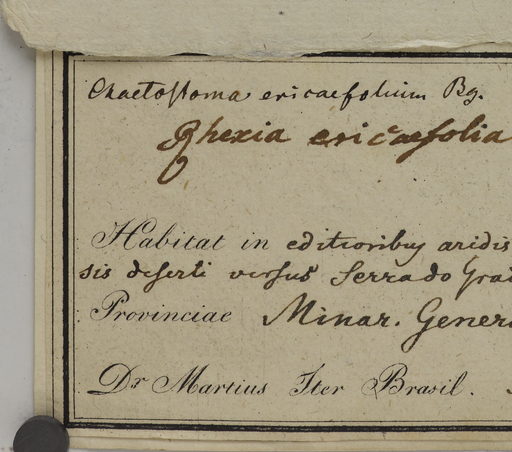 Chaetostoma ericaefolium Bg.
Rhexia ericaefolia
Habitat in editioribus aridis
sis deserti versus Serra do Grai
Provinciae Minar. Gener
Dr Martius Iter Brasil.